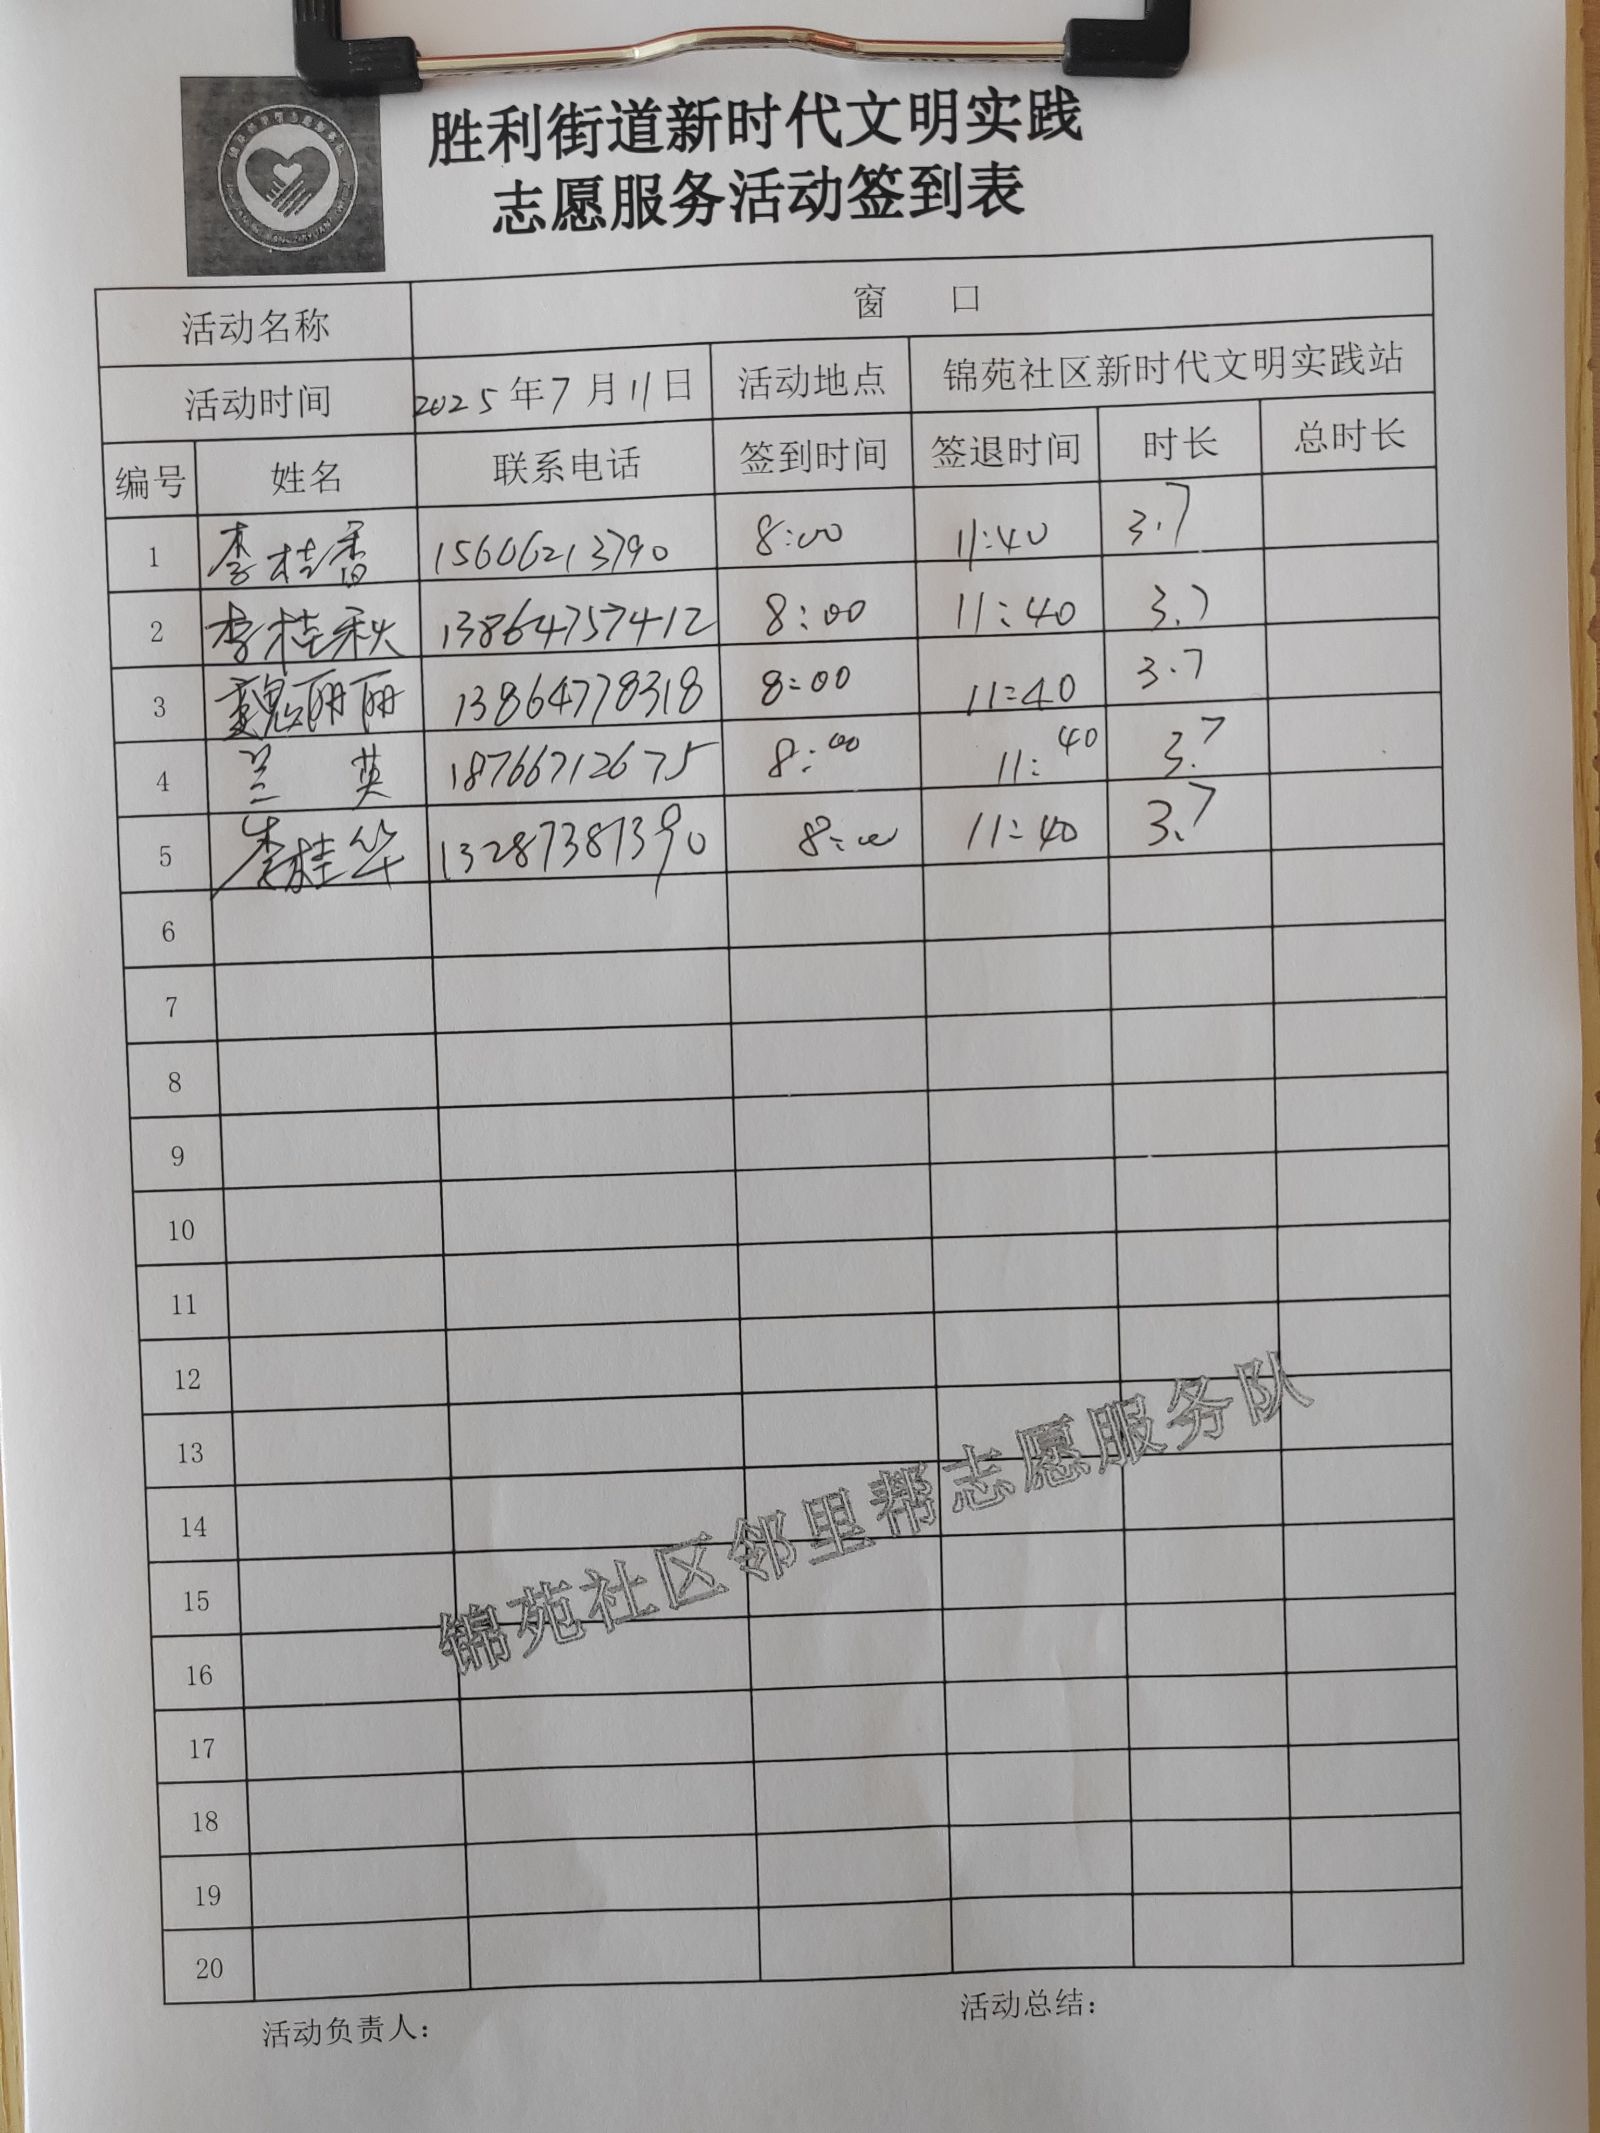 胜利街道新时代文明实践
志愿服务活动签到表
活动名称 窗 口
活动时间 2025年7月11日 活动地点 锦苑社区新时代文明实践站
编号 姓名 联系电话 签到时间 签退时间 时长 总时长
1 李桂香 15606213790 8:00 11:40 3.7
2 李桂秋 13864757412 8:00 11:40 3.7
3 魏丽丽 13864778318 8:00 11:40 3.7
4 兰英 18766712675 8:00 11:40 3.7
5 李桂华 13287387390 8:00 11:40 3.7
6
7
8
9
10
11
12
13
14
15
16
17
18
19
20
锦苑社区邻里帮志愿服务队
活动负责人： 活动总结：